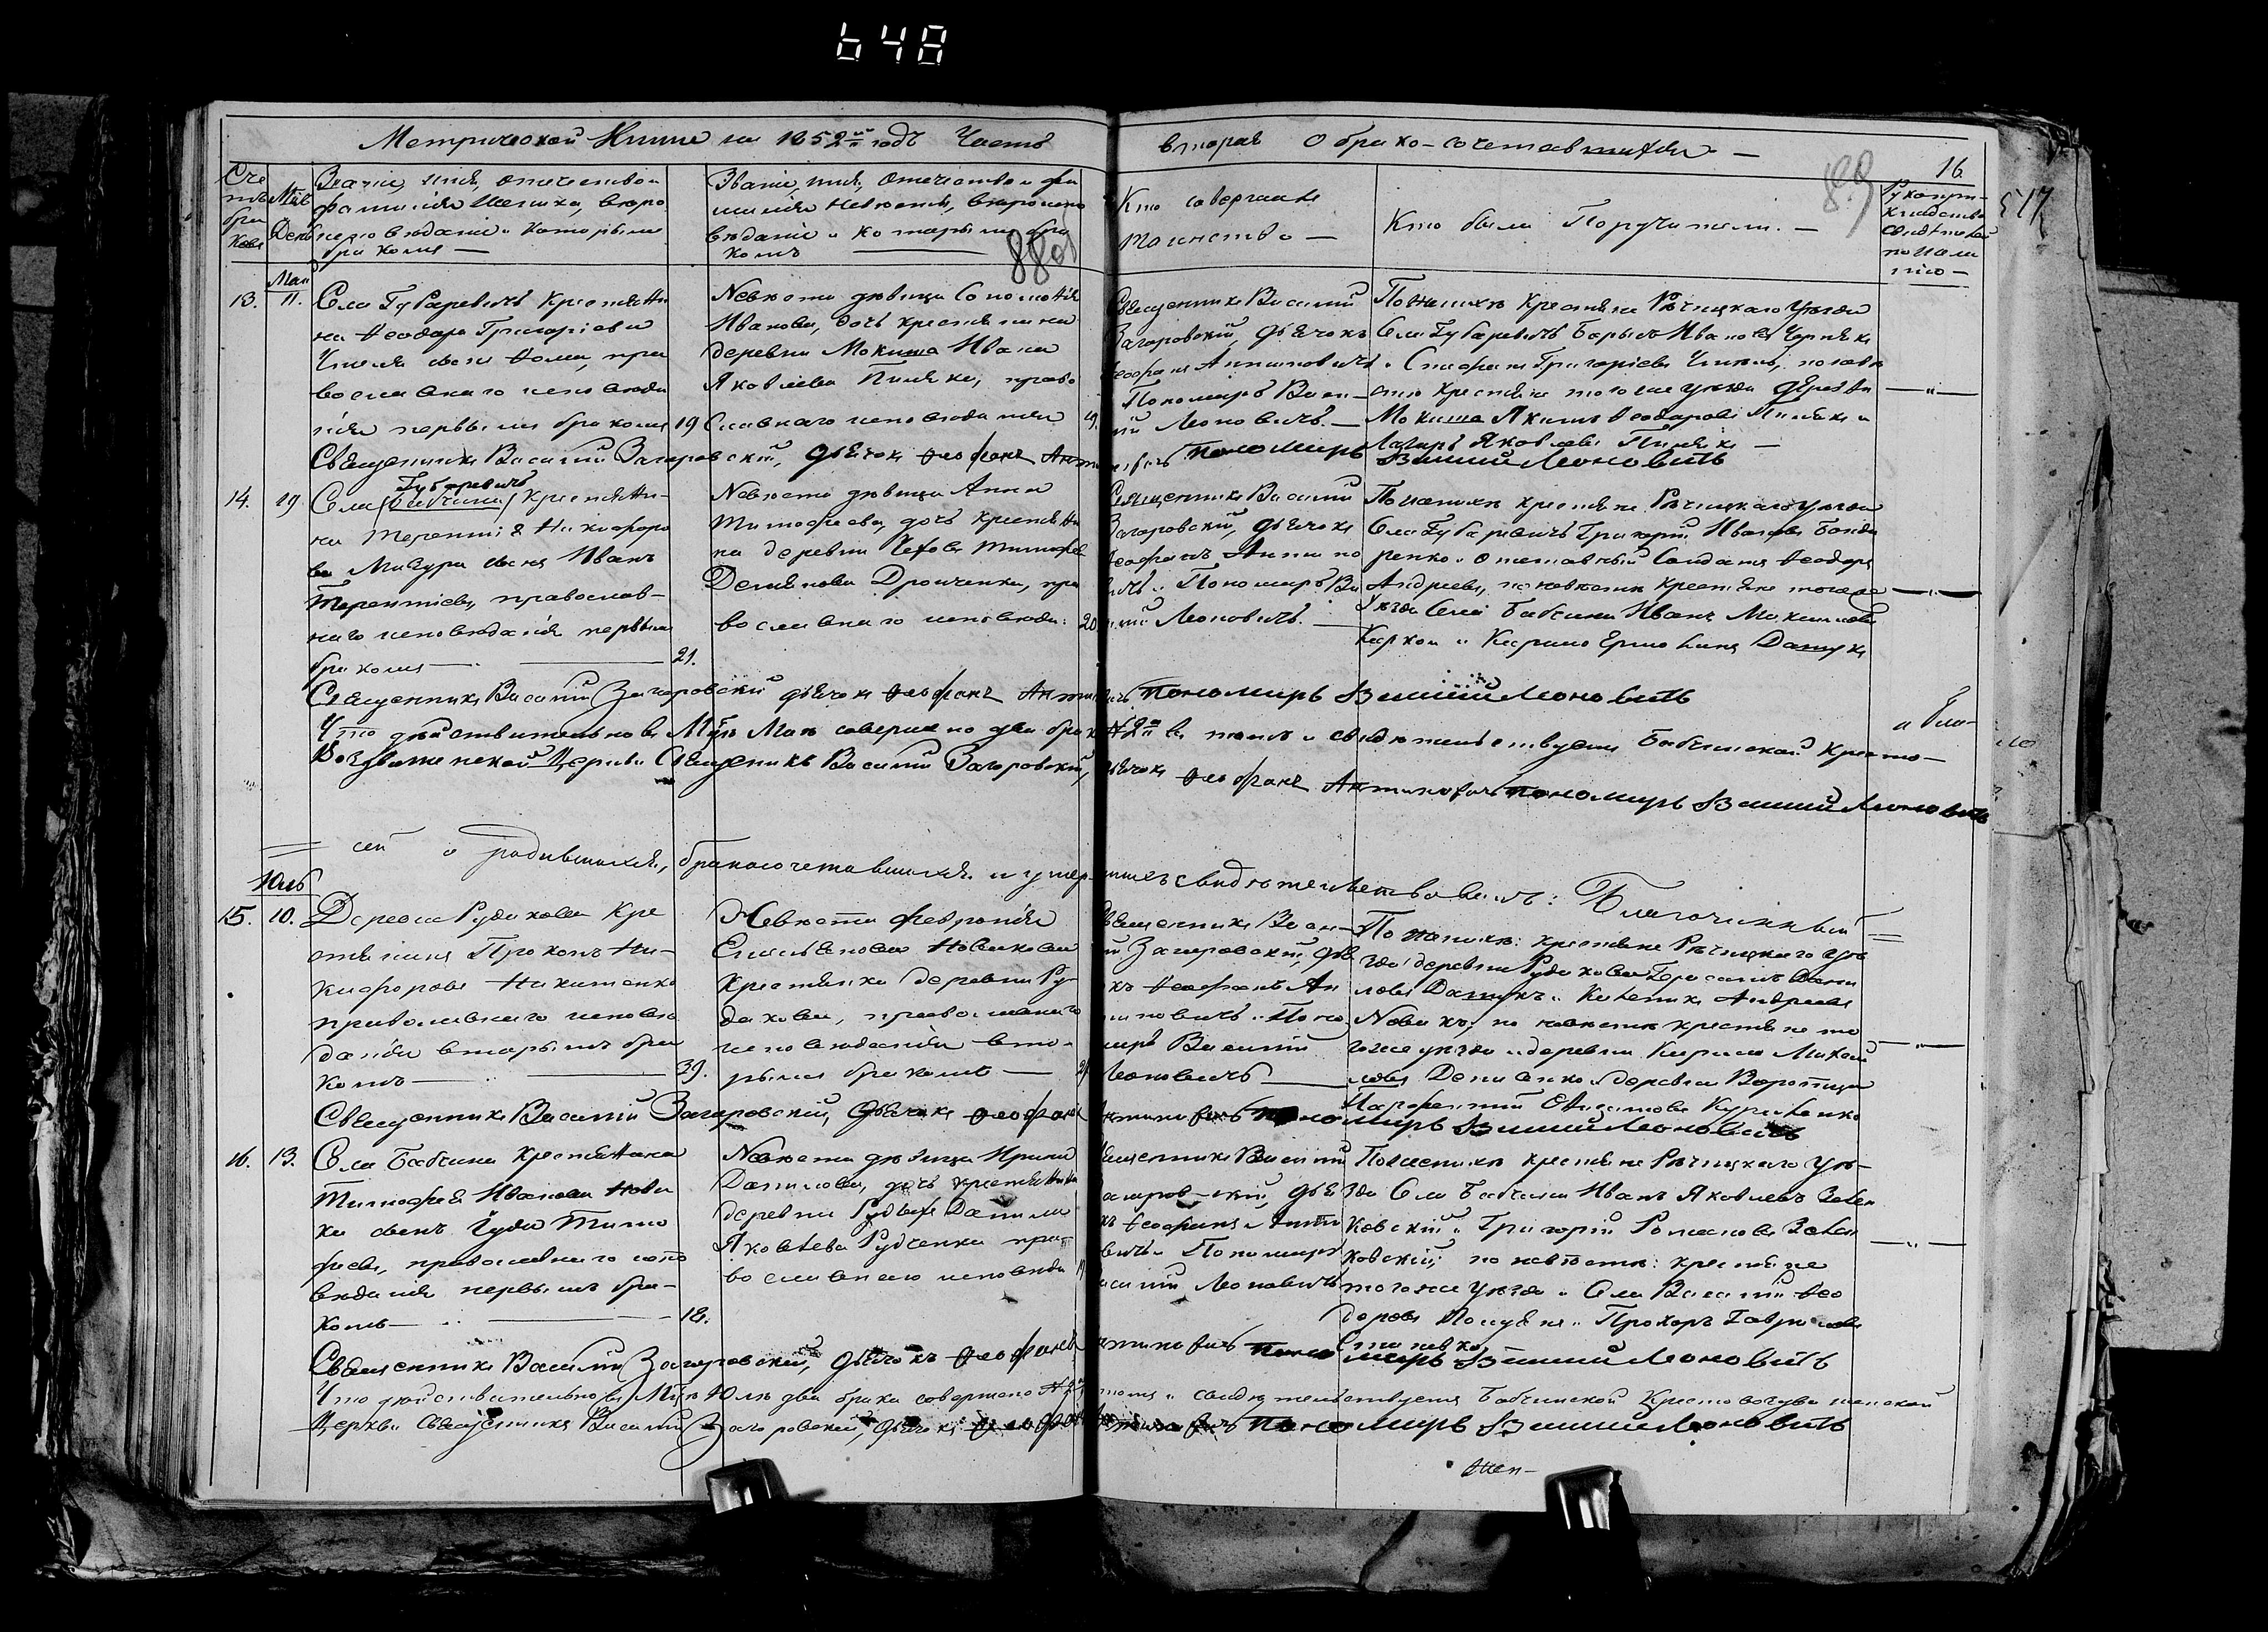 648
Метрической Книги на 1852й годъ Часть вторая О брако-сочетавшихся —
88об
89
16
517
Сче
тъ
бра
ковъ
Мѣс
День
Званіе, имя, отечество и
фамилія Жениха, вѣро
исповѣданіе и которымъ
бракомъ —
Званіе, имя, отечество и фа
милія Невѣсты, вѣроиспо
вѣданіе и которымъ бра
комъ —
Кто совершалъ
таинство —
Кто были Поручители. —
Рукопри-
кладство
свидѣтелей
по жела
нію —
Май
13. 11.
Села Губаревичъ крестьяни
на Ѳеодора Григоріева
сынъ Ѳома, пра
вославнаго исповѣда
нія первымъ бракомъ 19
Невѣста дѣвица Соломонія
Иванова, дочь крестьянина
деревни Мокиша Ивана
Яковлева право
славнаго исповѣданія 19.
Священникъ Василій
Загоровскій, дьячокъ
Ѳеофанъ Антиновичъ
и Пономарь Васи-
лій Леоновичъ. —
По Женихѣ крестьяне Рѣчицкаго уѣзда
Села Губаревичъ Иванова
и Стефанъ Григоріевъ по невѣ
стѣ крестьяне того же уѣзда деревни
Мокиша Якимъ Ѳеодоровъ и
Лазарь Яковлевъ —
— „ —
Священникъ Василій Загоровскій, Дьячокъ Ѳеофанъ Антиновичъ Пономарь Василий Леоновичъ
14. 19
Губаревичъ
Села (Бабчина) крестьяни-
на Терентія Никифоро
ва Мазура сынъ Иванъ
Терентіевъ, православ-
наго исповѣданія первымъ
бракомъ — 21.
Невѣста дѣвица Анна
Тимофеева, дочь крестьяни
на деревни Чехова Тимофея
Деменкова Дроиченка, пра
вославнаго исповѣда: 20
Священникъ Василій
Загоровскій, дьячокъ
Ѳеофанъ Антино
вичъ и Пономарь Ва
силій Леоновичъ. —
По женихѣ крестьяне Рѣчицкаго уѣзда
Села Губаревичъ Григорій Ивановъ Бонда
ренко и отставный Солдатъ Ѳеодоръ
Андреевъ, по невѣстѣ крестьяне того же
уѣзда Села Бабчина Иванъ
и Кирило Дашукъ
— „ —
Священникъ Василій Загоровскій дьячокъ Ѳеофанъ Антиновичъ пономарь Василий Леоновичъ
Что дѣйствительно въ Мцѣ Маѣ совершено два брака №2й въ томъ и свидѣтельствуемъ Бабчинской Кресто-
Воздвиженской Церкви Священникъ Василій Загоровскій, дьячокъ Ѳеофанъ Антиновичъ пономарь Василий Леоновичъ
сей о родившихся, бракосочетавшихся и умершихъ свидѣтельствовалъ: Благочинный
Іюль
15. 10.
Деревни Рудакова Кре
стьянинъ Прокопъ Ни-
кифоровъ Никитенко
православнаго исповѣ
данія вторымъ бра
комъ — 39.
Невѣста Февронія
Емельянова Новикова
Крестьянка деревни Ру
дакова, православнаго
исповѣданія вто-
рымъ бракомъ —
Священникъ Васи-
лій Загоровскій, дья
чокъ Ѳеофанъ Ан
тиновичъ и Поно
марь Василій
Леоновичъ —
По женихѣ: крестьяне Рѣчицкаго уѣ
зда деревни Рудакова Герасимъ
и Андреевъ
Новикъ: по невѣстѣ крестьяне то
гоже уѣзда и деревни Кирило Михай
ловъ Денисенко и деревни Воротца
— „ —
Священникъ Василій Загоровскій, Дьячокъ Ѳеофанъ Антиновичъ Пономарь Василий Леоновичъ
16. 13.
Села Бабчина крестьянина
Тимофея Иванова Нови
ка сынъ Іуда Тимо
феевъ, православнаго испо
вѣданія первымъ бра-
комъ — 18.
Невѣста дѣвица Ирина
Данилова, дочь крестьянина
деревни Данила
Яковлева Рудченка пра-
вославнаго исповѣда
Священникъ Василій
Загоровскій, дья
чокъ Ѳеофанъ Анти
новичъ и Пономарь
Василій Леоновичъ
По женихѣ крестьяне Рѣчицкаго уѣ-
зда Села Бабчина Иванъ Яковлевъ Зелен
ковскій и Григорій Романовъ Зелен
ковскій, по невѣстѣ: крестьяне
тогоже уѣзда и Села Василій Ѳео
доровъ и Прохоръ Гавриловъ
— „ —
Священникъ Василій Загоровскій, дьячокъ Ѳеофанъ Антиновичъ пономарь Василий Леоновичъ
Что дѣйствительно въ Мцѣ Юлѣ два брака совершено томъ и свидѣтельствуемъ Бабчинской Крестовоздвиженской
Церкви Священникъ Василій Загоровскій, дьячокъ Ѳеофанъ Антиновичъ Пономарь Василий Леоновичъ